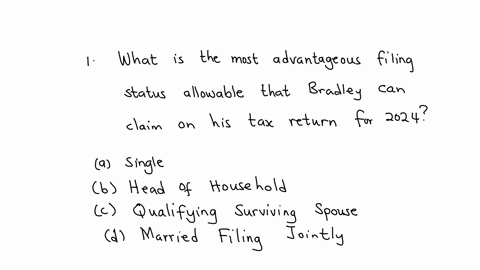 1. What is the most advantageous filing
status allowable that Bradley can
claim on his tax return for 2024?
(a) Single
(b) Head of Household
(c) Qualifying Surviving Spouse
(d) Married Filing Jointly